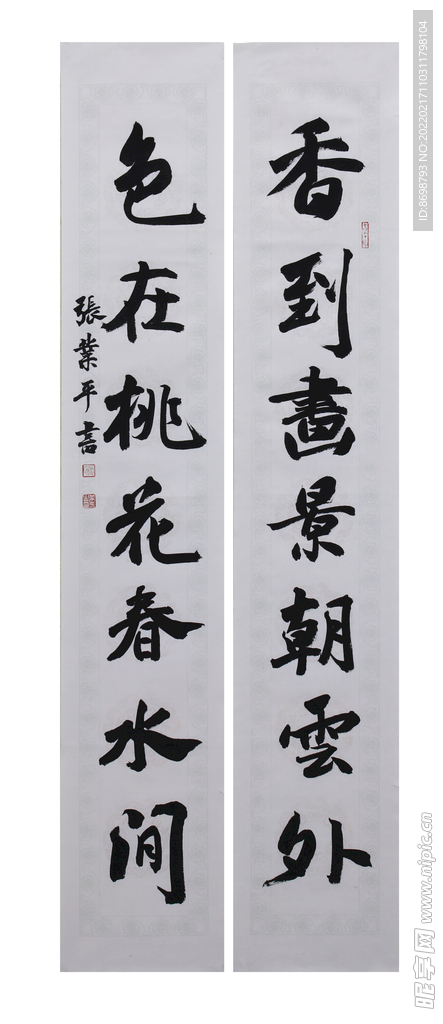 香到畫景朝雲外
色在桃花春水間
張業平書
ID:8698793 NO:20220217110311798104
昵享网 www.nipic.cn